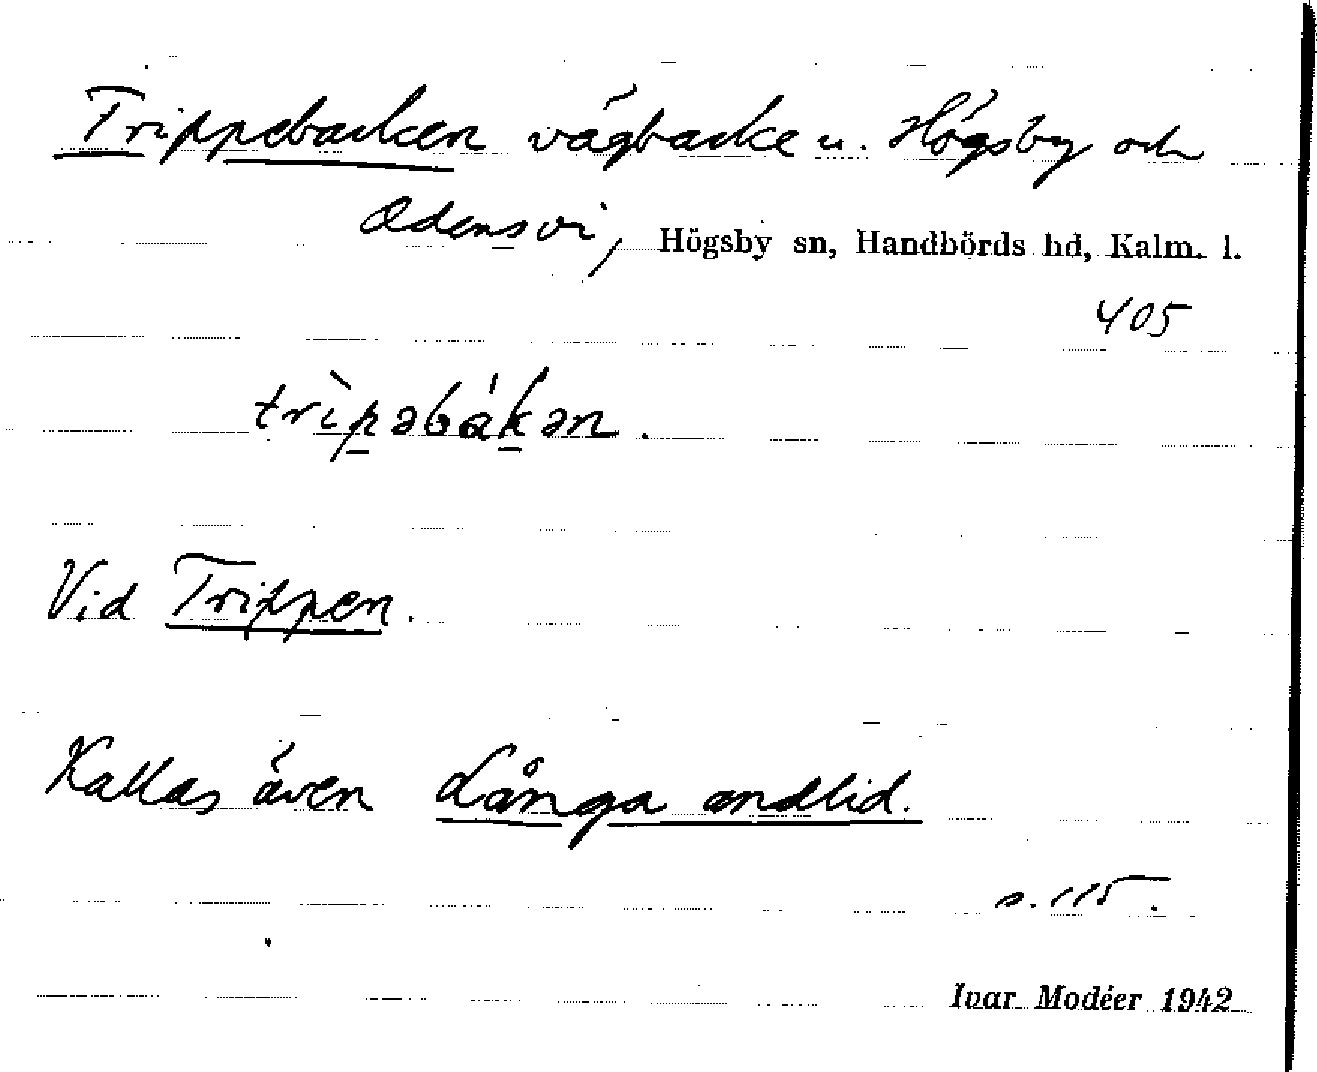 Trippebacken vägbacke u. Högsby och
Ödensvi, Högsby sn, Handbörds hd, Kalm. l.
405
trìpəbákən.
Vid Trippen.
Kallas även Långa andlid.
s. 115.
Ivar Modéer 1942